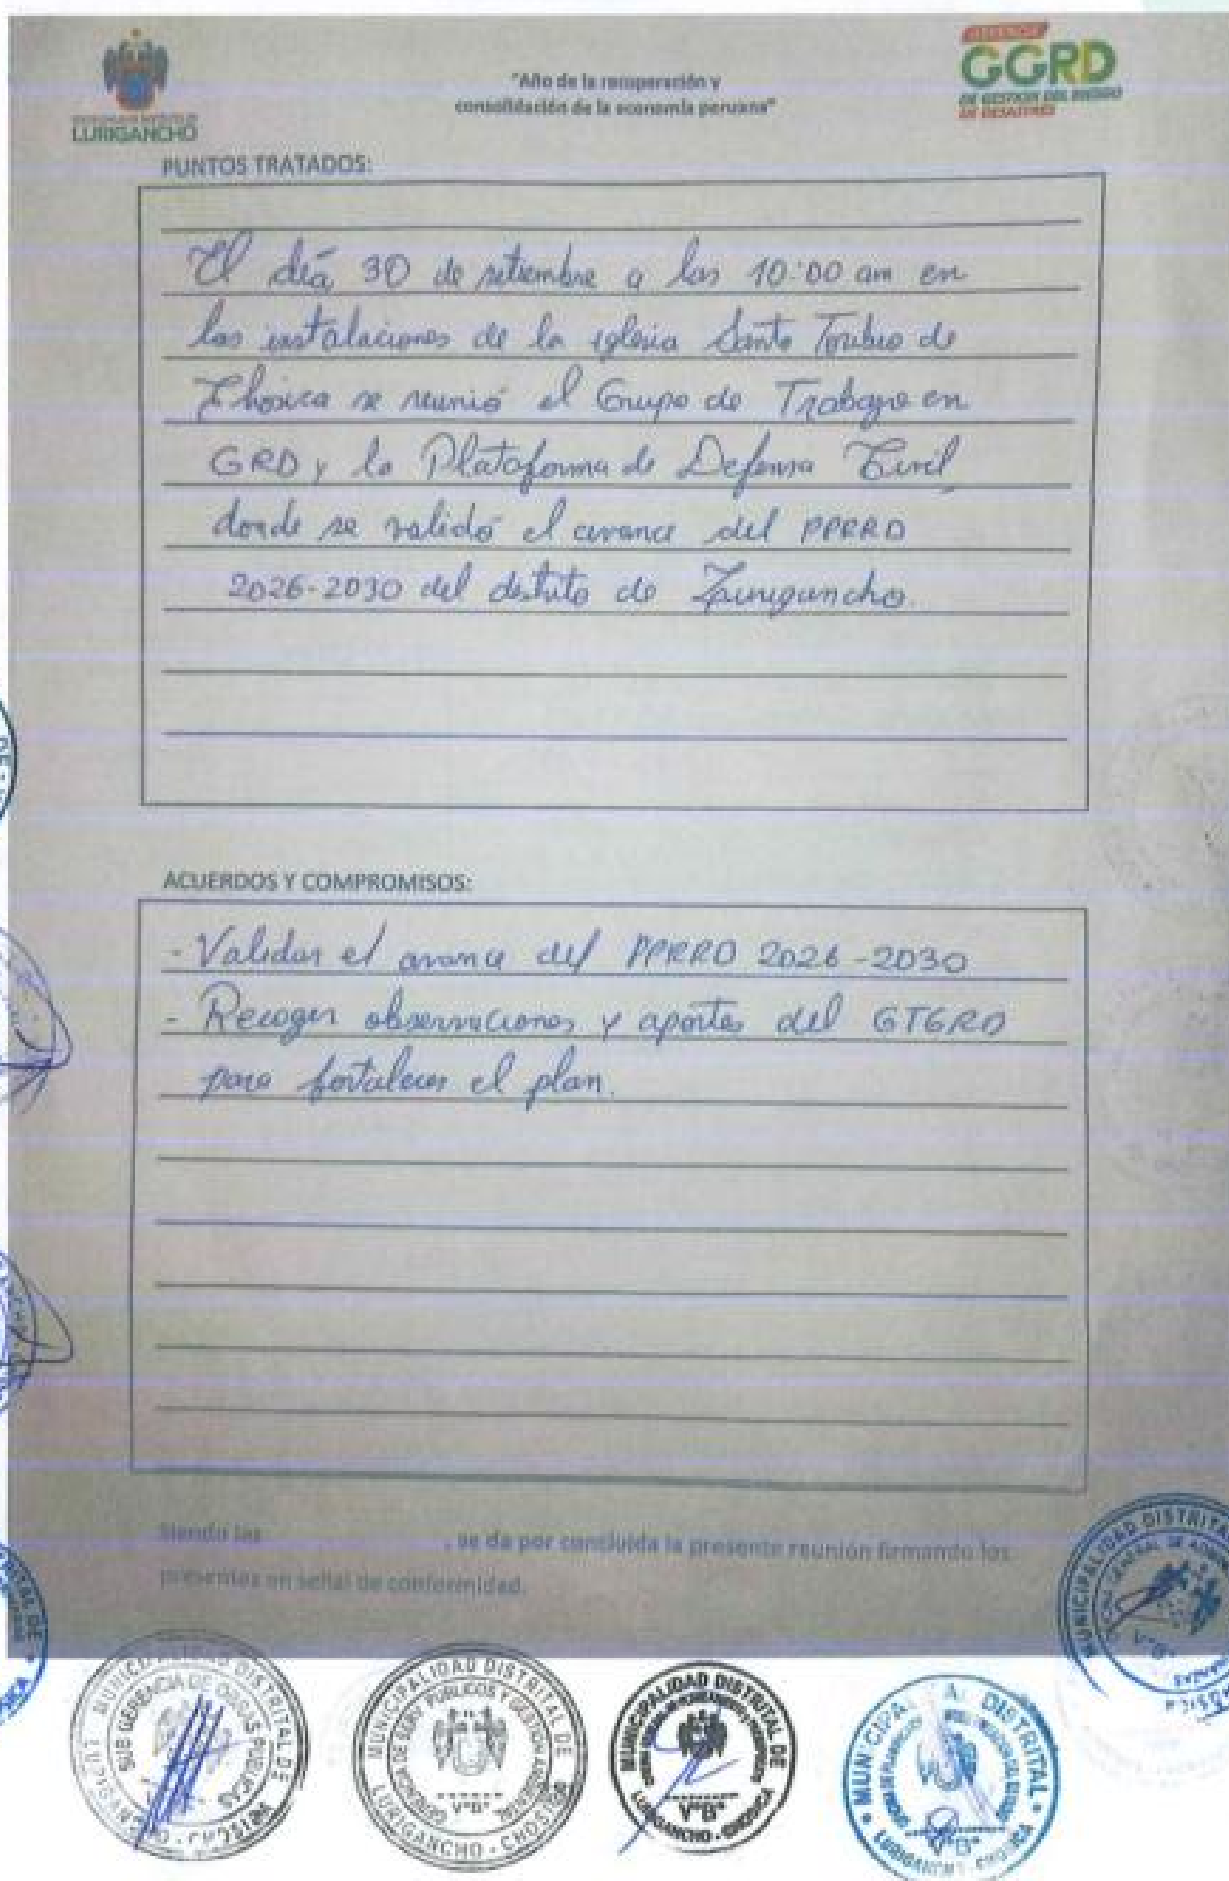 LURIGANCHO
"Año de la recuperación y
consolidación de la economía peruana"
GERENCIA
GGRD
DE GESTION DEL RIESGO
DE DESASTRES
PUNTOS TRATADOS:
El día 30 de setiembre a las 10:00 am en
las instalaciones de la iglesia Santo Toribio de
Chosica se reunió el Grupo de Trabajo en
GRD y la Plataforma de Defensa Civil,
donde se validó el avance del PPRRD
2026-2030 del distrito de Lurigancho.
ACUERDOS Y COMPROMISOS:
- Validar el avance del PPRRD 2026-2030
- Recoger observaciones y aportes del GTGRD
para fortalecer el plan.
Siendo las , se da por concluida la presente reunión firmando los
presentes en señal de conformidad.
MUNICIPALIDAD DISTRITAL
V°B°
MUNICIPALIDAD DISTRITAL DE
SUB GERENCIA DE OBRAS PUBLICAS
MUNICIPALIDAD DISTRITAL DE
LURIGANCHO - CHOSICA
V°B°
MUNICIPALIDAD DISTRITAL DE
LURIGANCHO - CHOSICA
V°B°
MUNICIPALIDAD DISTRITAL
LURIGANCHO - CHOSICA
V°B°